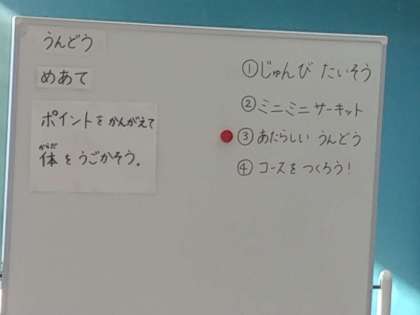 うんどう
めあて
ポイントをかんがえて
体をうごかそう。
からだ
①じゅんび たいそう
②ミニミニ サーキット
③あたらしい うんどう
④コースを つくろう!